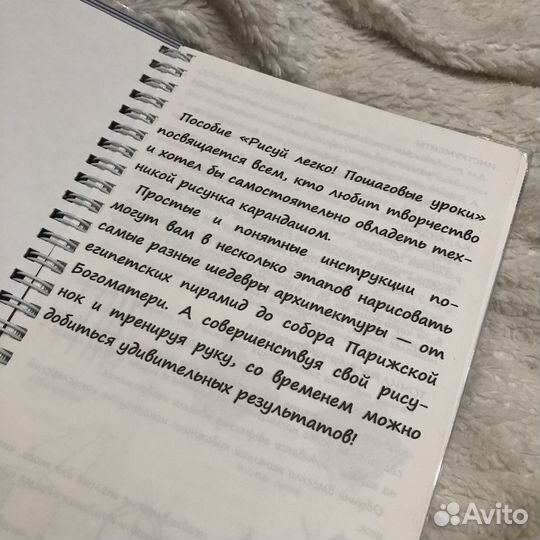 Пособие «Рисуй легко! Пошаговые уроки»
посвящается всем, кто любит творчество
и хотел бы самостоятельно овладеть тех-
никой рисунка карандашом.
Простые и понятные инструкции по-
могут вам в несколько этапов нарисовать
самые разные шедевры архитектуры — от
египетских пирамид до собора Парижской
Богоматери. А совершенствуя свой рису-
нок и тренируя руку, со временем можно
добиться удивительных результатов!
Avito